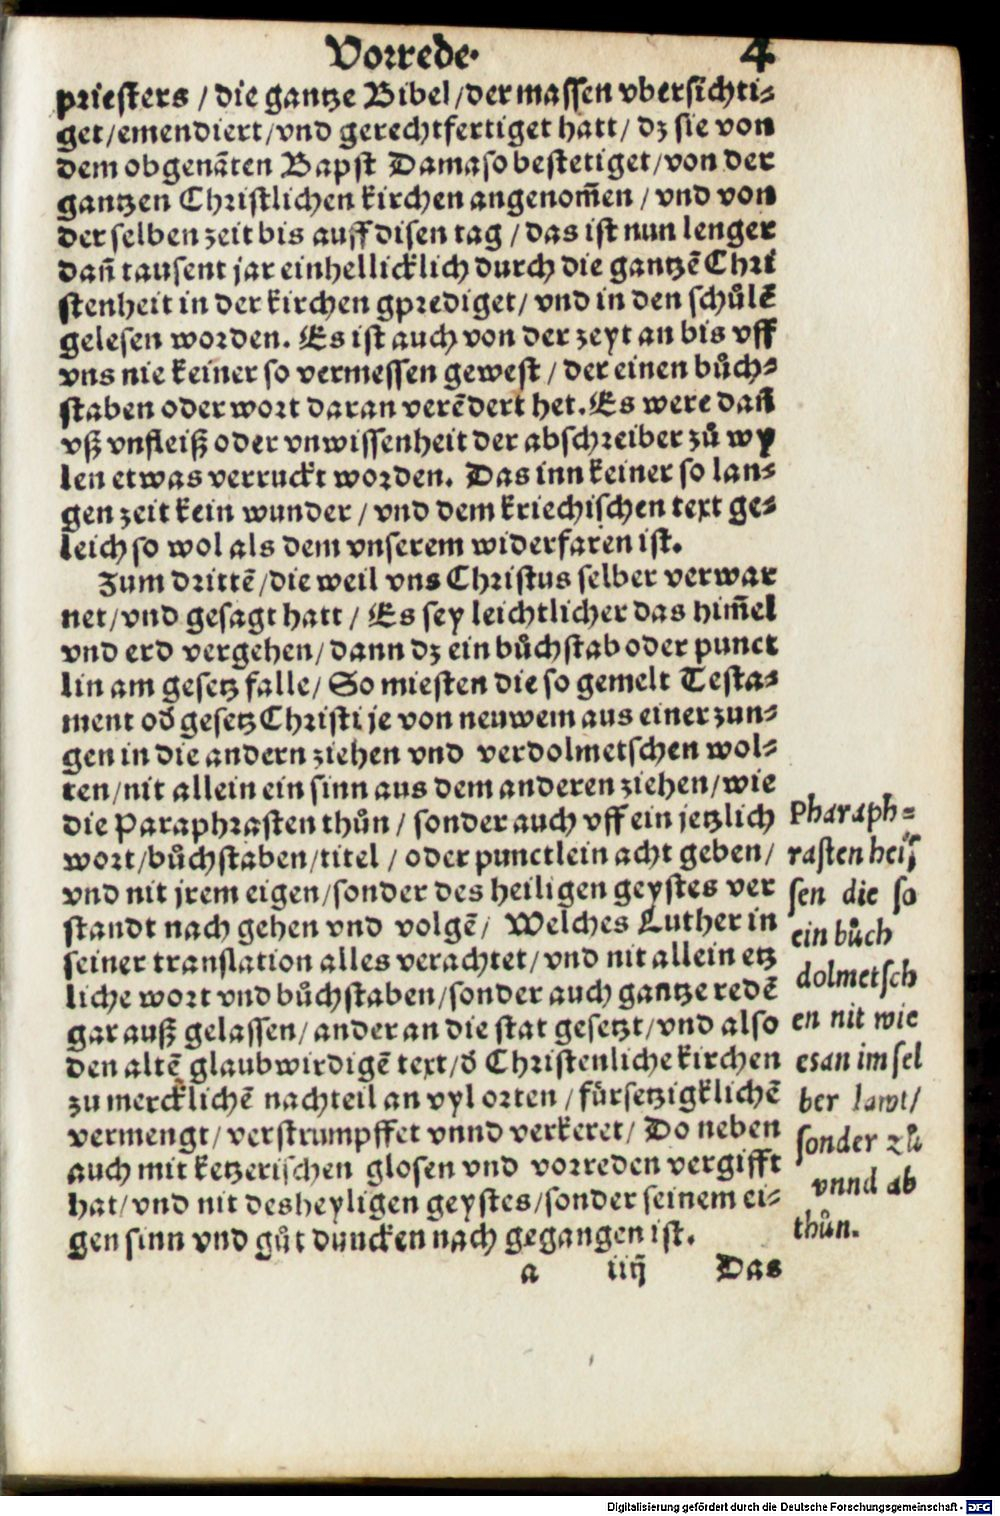 Vorrede. 4
priesters / die gantze Bibel / der massen vbersichti-
get / emendiert / vnd gerechtfertiget hatt / dz sie von
dem obgenãten Bapst Damaso bestetiget / von der
gantzen Christlichen kirchen angenom̃en / vnd von
der selben zeit bis auff disen tag / das ist nun lenger
dañ tausent jar einhellicklich durch die gantzẽ Chri
stenheit in der kirchen gprediget / vnd in den schůlẽ
gelesen worden. Es ist auch von der zeyt an bis vff
vns nie keiner so vermessen gewest / der einen bůch-
staben oder wort daran verẽdert het. Es were dañ
vß vnfleiß oder vnwissenheit der abschreiber zů wy
len etwas verruckt worden. Das inn keiner so lan-
gen zeit kein wunder / vnd dem kriechischen text ge-
leich so wol als dem vnserem widerfaren ist.
Zum drittẽ / die weil vns Christus selber verwar
net / vnd gesagt hatt / Es sey leichtlicher das him̃el
vnd erd vergehen / dann dz ein bůchstab oder punct
lin am gesetz falle / So miesten die so gemelt Testa-
ment od̕ gesetz Christi je von neuwem aus einer zun-
gen in die andern ziehen vnd verdolmetschen wol-
ten / nit allein ein sinn aus dem anderen ziehen / wie
die Paraphrasten thůn / sonder auch vff ein jetzlich
wort / bůchstaben / titel / oder punctlein acht geben /
vnd nit jrem eigen / sonder des heiligen geystes ver
standt nach gehen vnd volgẽ / Welches Luther in
seiner translation alles verachtet / vnd nit allein etz
liche wort vnd bůchstaben / sonder auch gantze redẽ
gar auß gelassen / ander an die stat gesetzt / vnd also
den altẽ glaubwirdigẽ text / d̕ Christenliche kirchen
zu mercklichẽ nachteil an vyl orten / fürsetzigklichẽ
vermengt / verstrumpffet vnnd verkeret / Do neben
auch mit ketzerischen glosen vnd vorreden vergifft
hat / vnd nit des heyligen geystes / sonder seinem ei-
gen sinn vnd gůt duncken nach gegangen ist.
a iiij Das
Pharaph-
rasten heis
sen die so
ein bůch
dolmetsch
en nit wie
es an im sel
ber lawt /
sonder zů
vnnd ab
thůn.
Digitalisierung gefördert durch die Deutsche Forschungsgemeinschaft - DFG